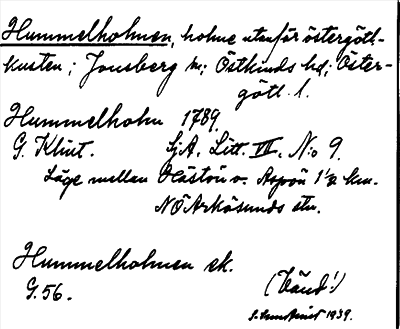 Hummelholmen, holme utanför östergötl.-
kusten; Jonsberg sn; Östkinds hd; Öster-
götl. l.
Hummelholm 1789.
G. Klint. SjA. Litt. VII. N:o 9.
Läge mellan Olästön o. Aspön 1½ km.
NÖ Arkösunds stn.
Hummelholmen ek.
G. 56.
(Vänd!)
1939.